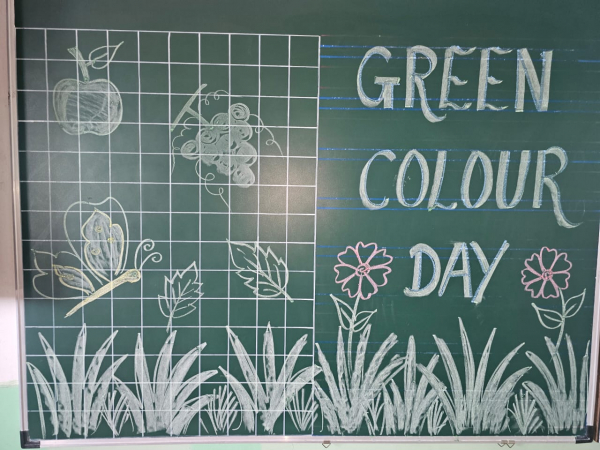 GREEN
COLOUR
DAY